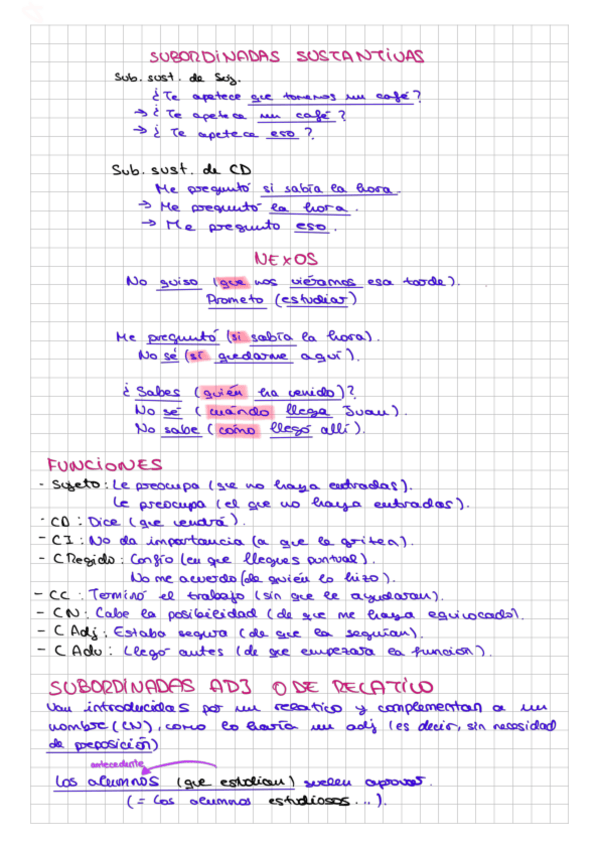 SUBORDINADAS SUSTANTIVAS
Sub. sust. de Suj.
¿Te apetece que tomemos un café?
→ ¿Te apetece un café?
→ ¿Te apetece eso?
Sub. sust. de CD
Me preguntó si sabía la hora.
→ Me preguntó la hora.
→ Me pregunto eso.
NEXOS
No quiso (que nos viéramos esa tarde).
Prometo (estudiar)
Me preguntó (si sabía la hora).
No sé (si quedarme aquí).
¿Sabes (quién ha venido)?
No sé (cuándo llega Juan).
No sabe (cómo llegó allí).
FUNCIONES
- Sujeto: Le preocupa (que no haya entradas).
Le preocupa (el que no haya entradas).
- CD: Dice (que vendrá).
- CI: No da importancia (a que la griten).
- C Regido: Confío (en que llegues puntual).
No me acuerdo (de quién lo hizo).
- CC: Terminó el trabajo (sin que le ayudaran).
- CN: Cabe la posibilidad (de que me haya equivocado).
- C Adj: Estaba segura (de que la seguían).
- C Adv: Llegó antes (de que empezara la función).
SUBORDINADAS ADJ O DE RELATIVO
Van introducidas por un relativo y complementan a un
nombre (CN), como lo haría un adj (es decir, sin necesidad
de preposición)
antecedente
Los alumnos (que estudian) suelen aprobar.
(= Los alumnos estudiosos...).